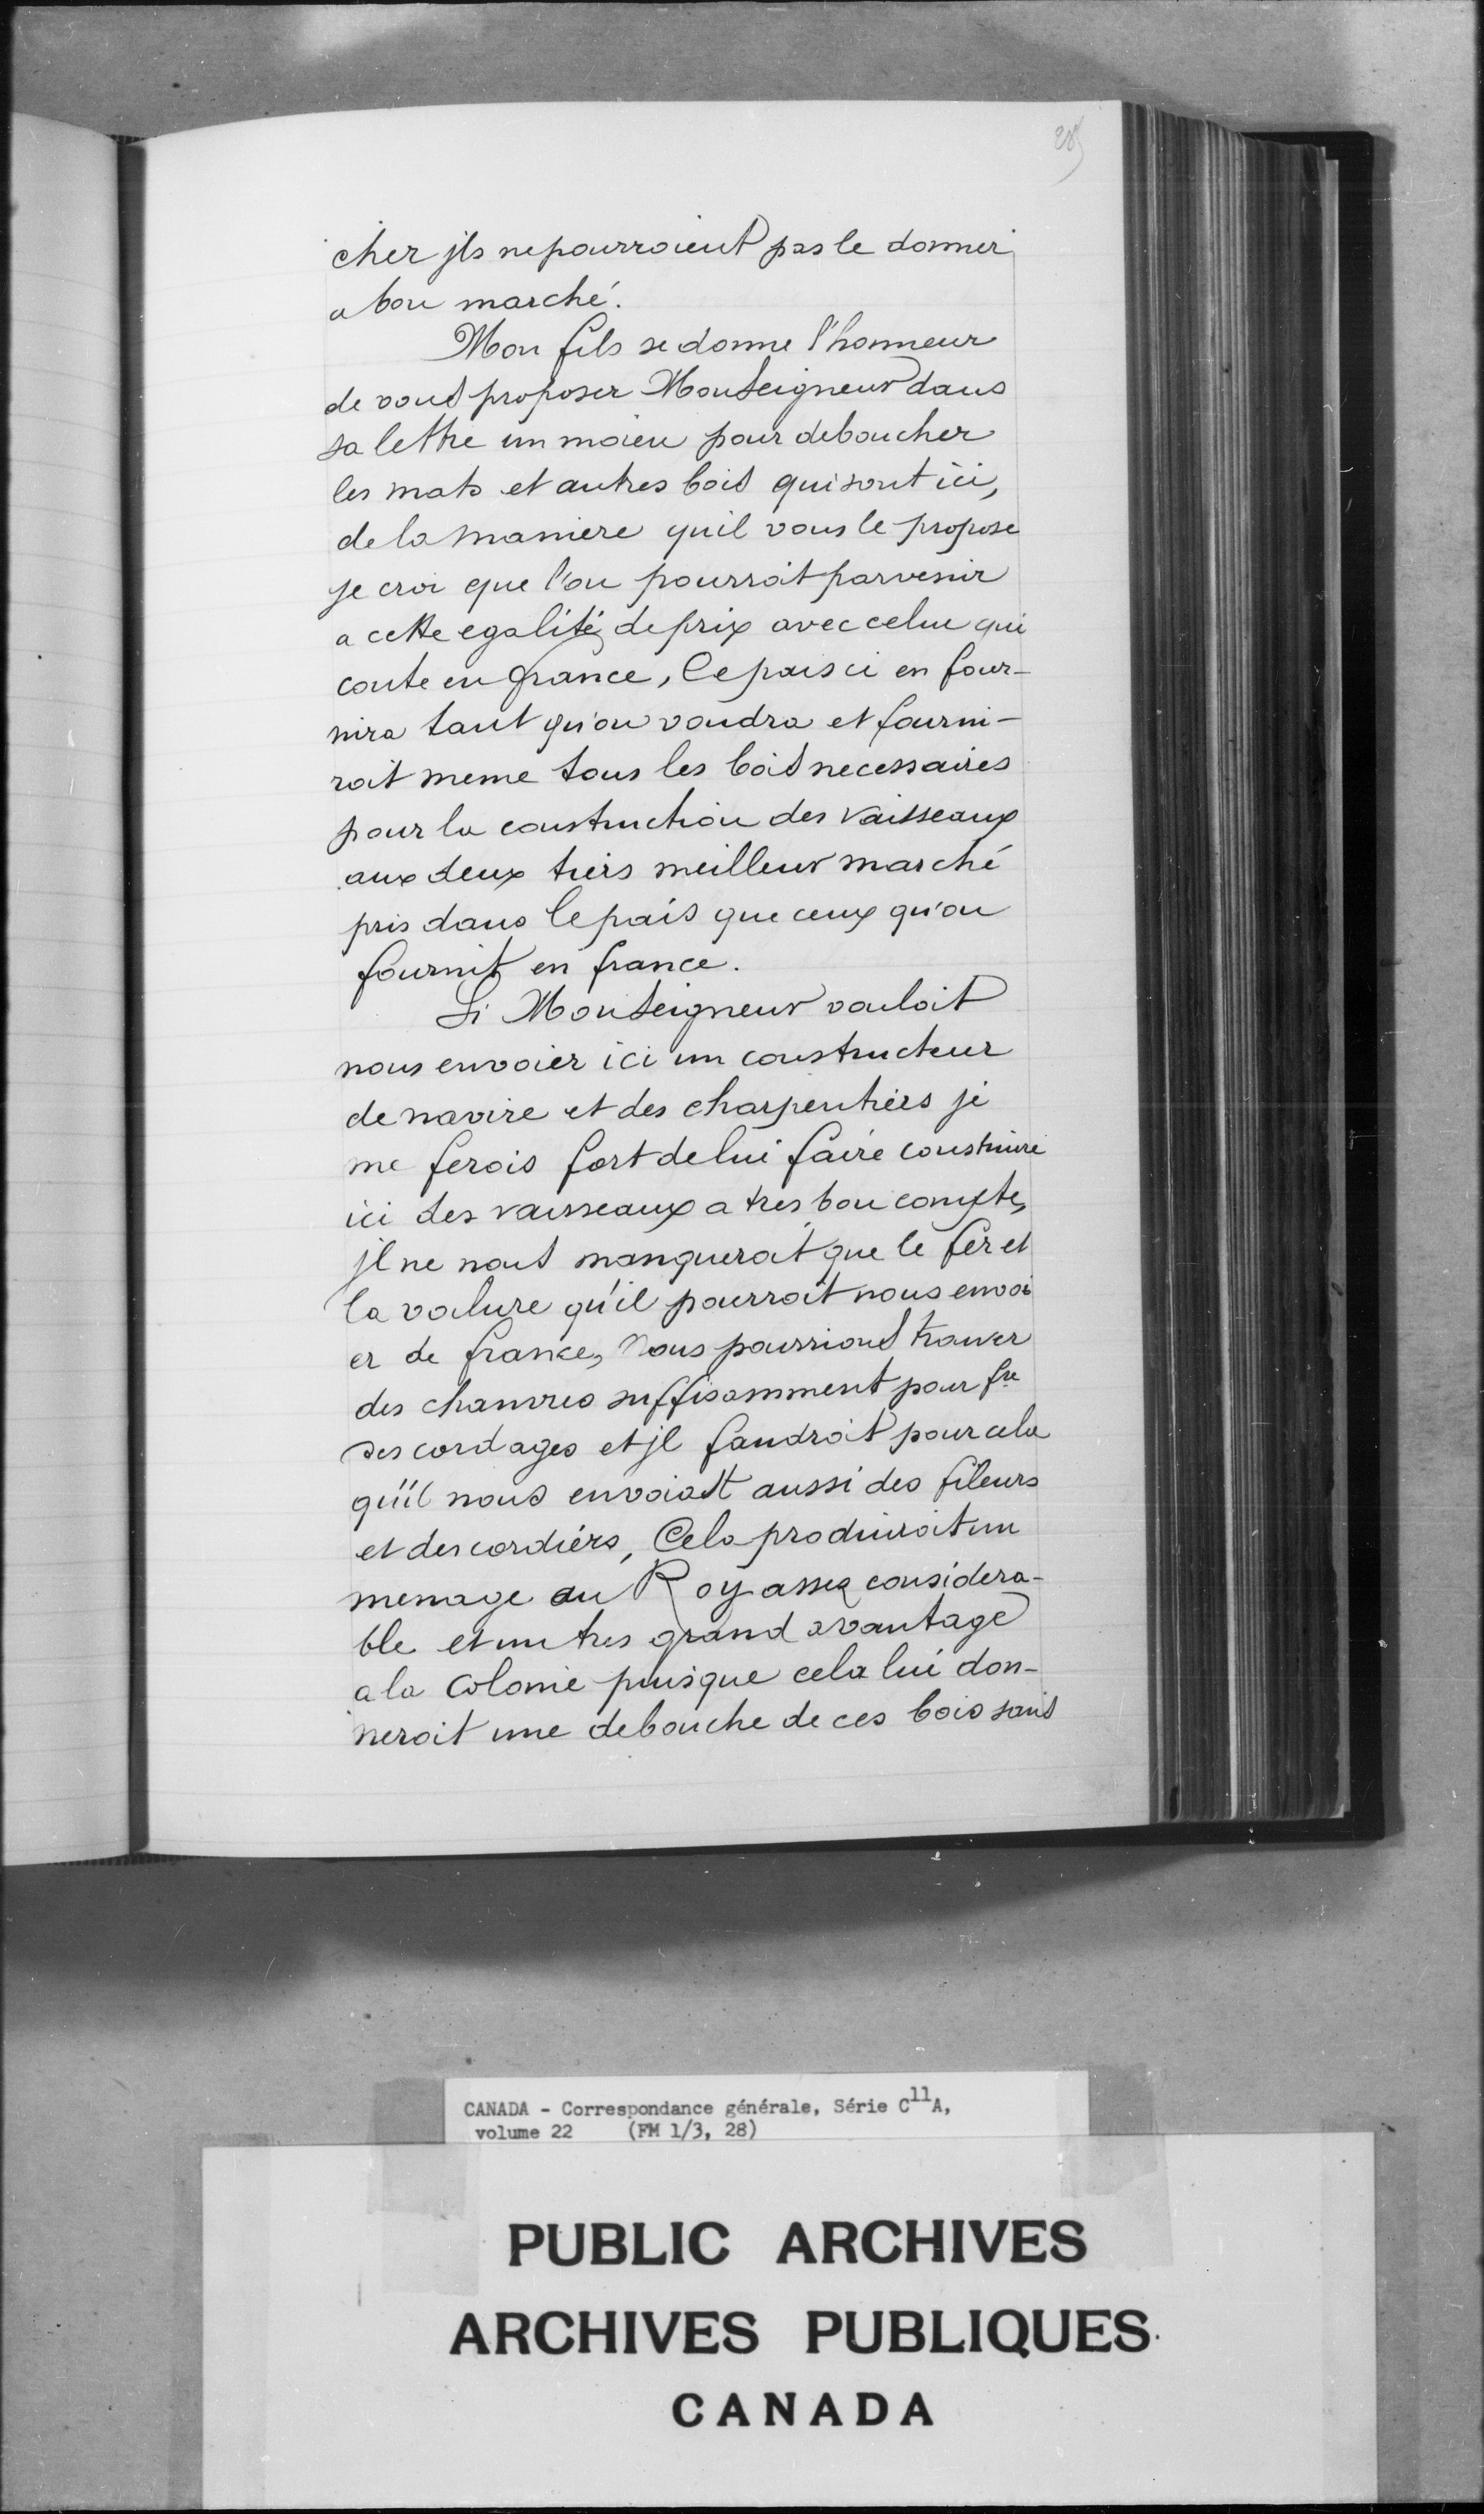 cher jls ne pourroient pas le donner
a bon marché.
Mon fils se donne l'honneur
de vous proposer Monseigneur dans
sa lettre un moien pour deboucher
les mats et autres bois qui sont ici,
de la maniere quil vous le propose
je croi que l'on pourroit parvenir
a cette egalité de prix avec celui qui
coute en france, le pais ci en four-
nira tant qu'on voudra et fourni-
roit meme tous les bois necessaires
pour la construction des vaisseaux
aux deux tiers meilleur marché
pris dans le païs que ceux qu'on
fournit en france.
Si Monseigneur vouloit
nous envoier ici un constructeur
de navire et des charpentiers je
me ferois fort de lui faire construire
ici des vaisseaux a tres bon compte,
jl ne nous manqueroit que le fer et
la voilure qu'il pourroit nous envoi
er de france, Nous pourrions trouver
des chanvres suffisamment pour fre
des cordages et jl faudroit pour cela
qu'il nous envoiast aussi des fileurs
et des cordiers, Cela produiroit un
menage au Roy assez considera-
ble et un tres grand avantage
a la Colonie puisque cela lui don-
neroit une debouche de ces bois sans
CANADA - Correspondance générale, Série C11A,
volume 22 (FM 1/3, 28)
PUBLIC ARCHIVES
ARCHIVES PUBLIQUES
CANADA